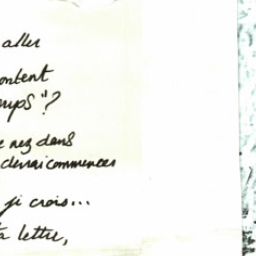 aller
ontent
mps"?
e nez dans
devrai commencer
j'y crois...
ta lettre,